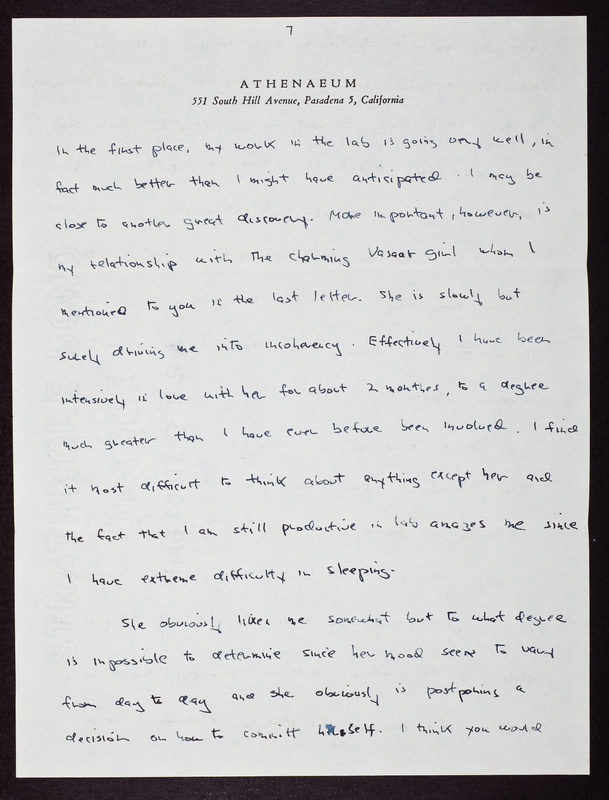 7
ATHENAEUM
551 South Hill Avenue, Pasadena 5, California
In the first place, my work in the lab is going very well, in
fact much better than I might have anticipated. I may be
close to another great discovery. More important, however, is
my relationship with the charming Vassar girl whom I
mentioned to you in the last letter. She is slowly but
surely driving me into incoherency. Effectively I have been
intensively in love with her for about 2 months, to a degree
much greater than I have ever before been involved. I find
it most difficult to think about anything except her and
the fact that I am still productive in lab amazes me since
I have extreme difficulty in sleeping.
She obviously likes me somewhat but to what degree
is impossible to determine since her mood seems to vary
from day to day and she obviously is postponing a
decision on how to committ herself. I think you would